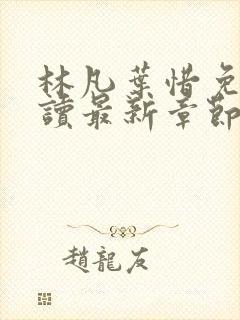 林凡葉惜免
讀最新章節
趙龍友